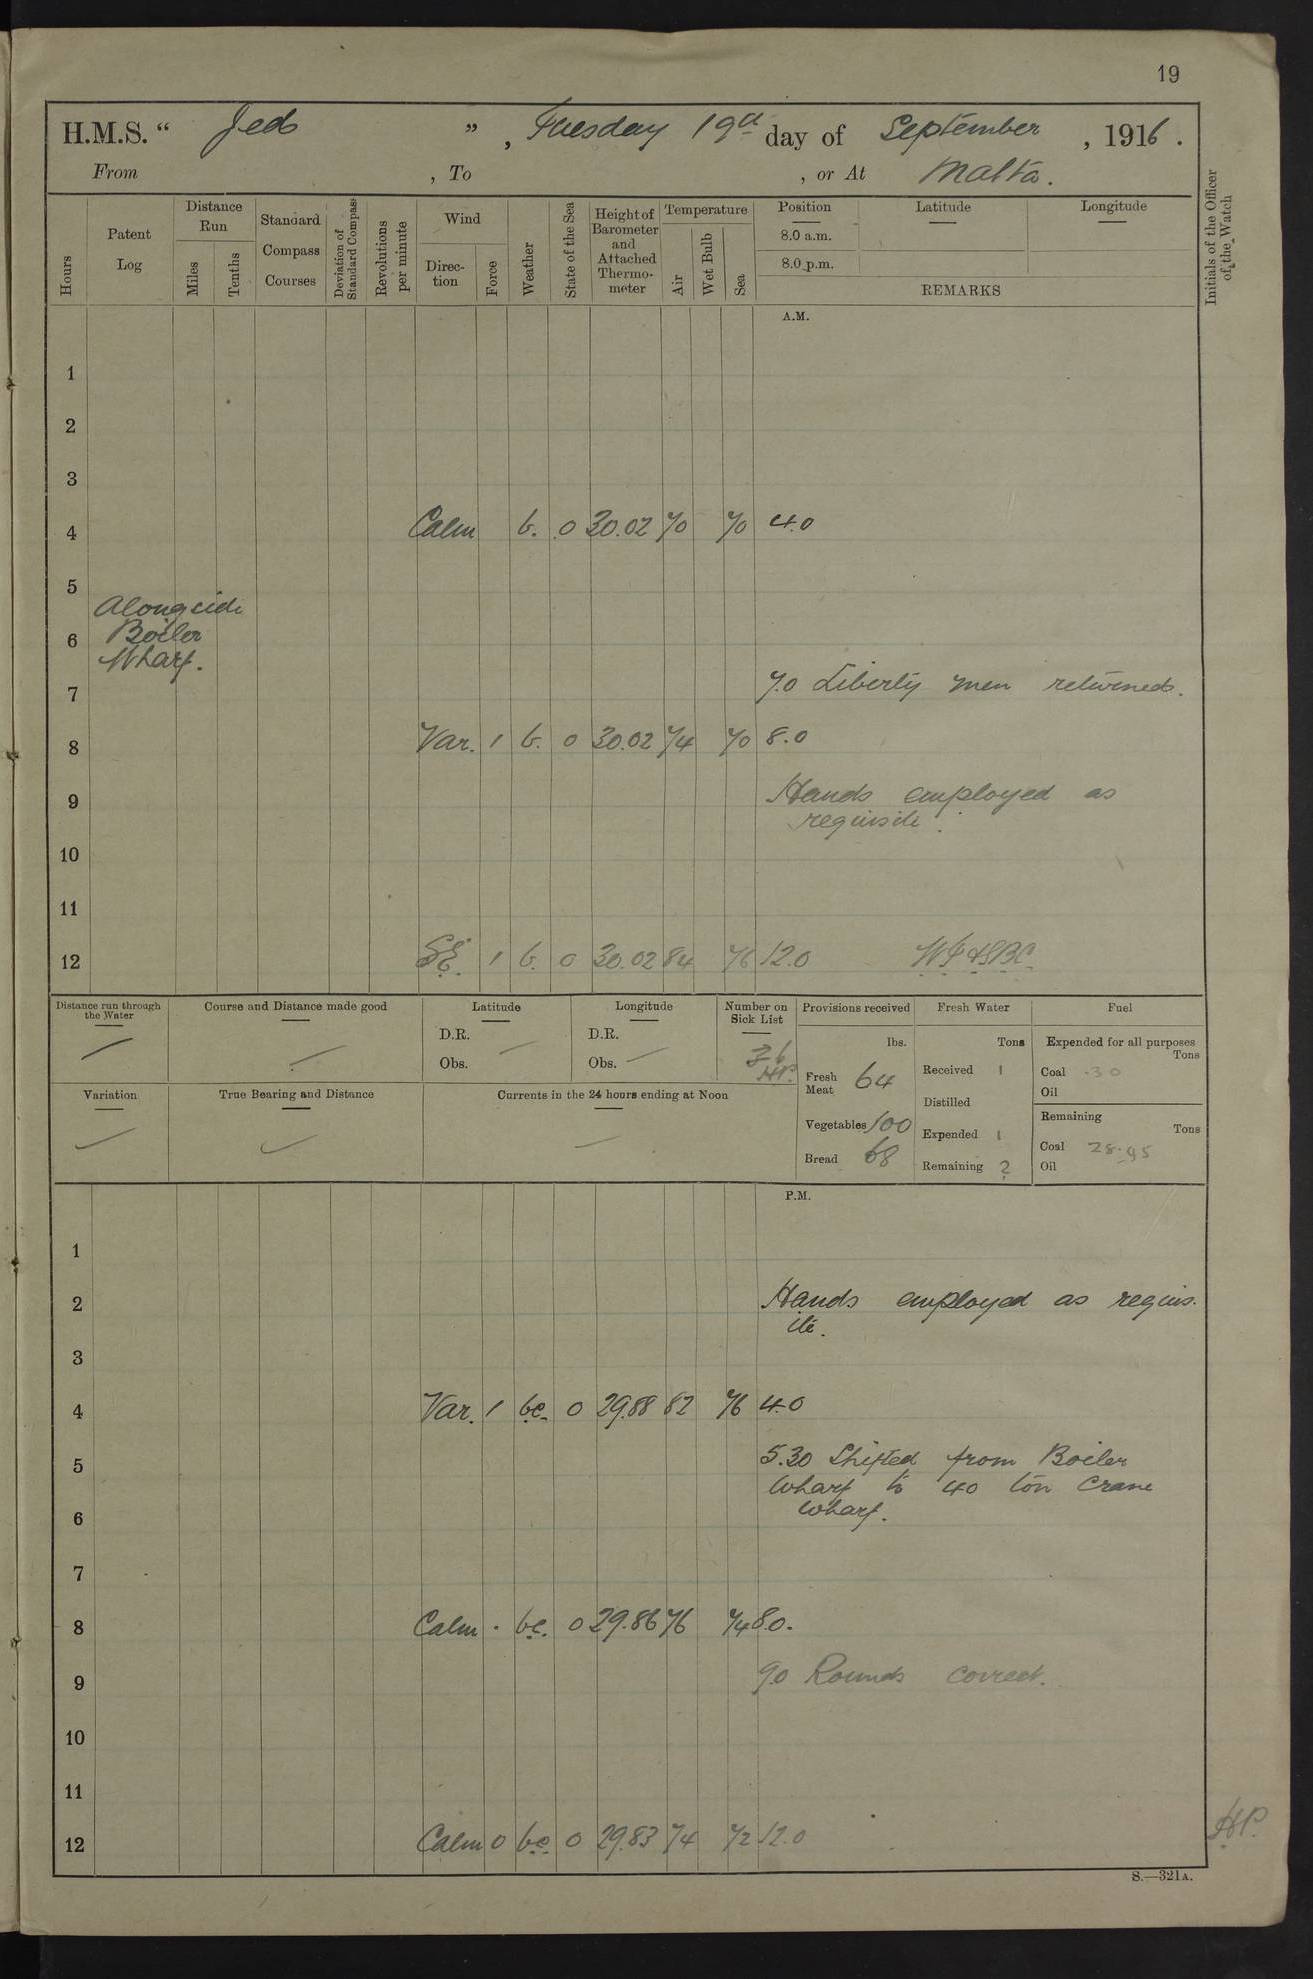 19
H.M.S. “ Jed ” , Tuesday 19th day of September , 1916 .
From , To , or At Malta.
Hours
Patent Log
Distance Run
Miles
Tenths
Standard Compass Courses
Deviation of Standard Compass
Revolutions per minute
Wind
Direction
Force
Weather
State of the Sea
Height of Barometer and Attached Thermometer
Temperature
Air
Wet Bulb
Sea
Position
Latitude
Longitude
8.0 a.m.
8.0 p.m.
REMARKS
Initials of the Officer of the Watch
A.M.
1
2
3
4 Calm b. 0 30.02 70 70 4.0
5
Alongside
6 Boiler
Wharf.
7 7.0 Liberty men returned.
8 Var. 1 b. 0 30.02 74 70 8.0
9 Hands employed as
requisite.
10
11
12 SE. 1 b. 0 30.02 84 76 12.0
Distance run through the Water
Course and Distance made good
Latitude
D.R.
Obs.
Longitude
D.R.
Obs.
Number on Sick List
HP.
Variation
True Bearing and Distance
Currents in the 24 hours ending at Noon
Provisions received
lbs.
Fresh Meat 64
Vegetables 100
Bread 68
Fresh Water
Tons
Received 1
Distilled
Expended 1
Remaining ?
Fuel
Expended for all purposes
Tons
Coal .30
Oil
Remaining
Tons
Coal 28.95
Oil
P.M.
1
2 Hands employed as requis-
ite.
3
4 Var. 1 bc. 0 29.88 82 76 4.0
5 5.30 Shifted from Boiler
wharf to 40 ton Crane
6 wharf.
7
8 Calm . bc. 0 29.86 76 74 8.0.
9 9.0 Rounds correct.
10
11
12 Calm 0 bc. 0 29.83 74 72 12.0 HP.
S.—321A.